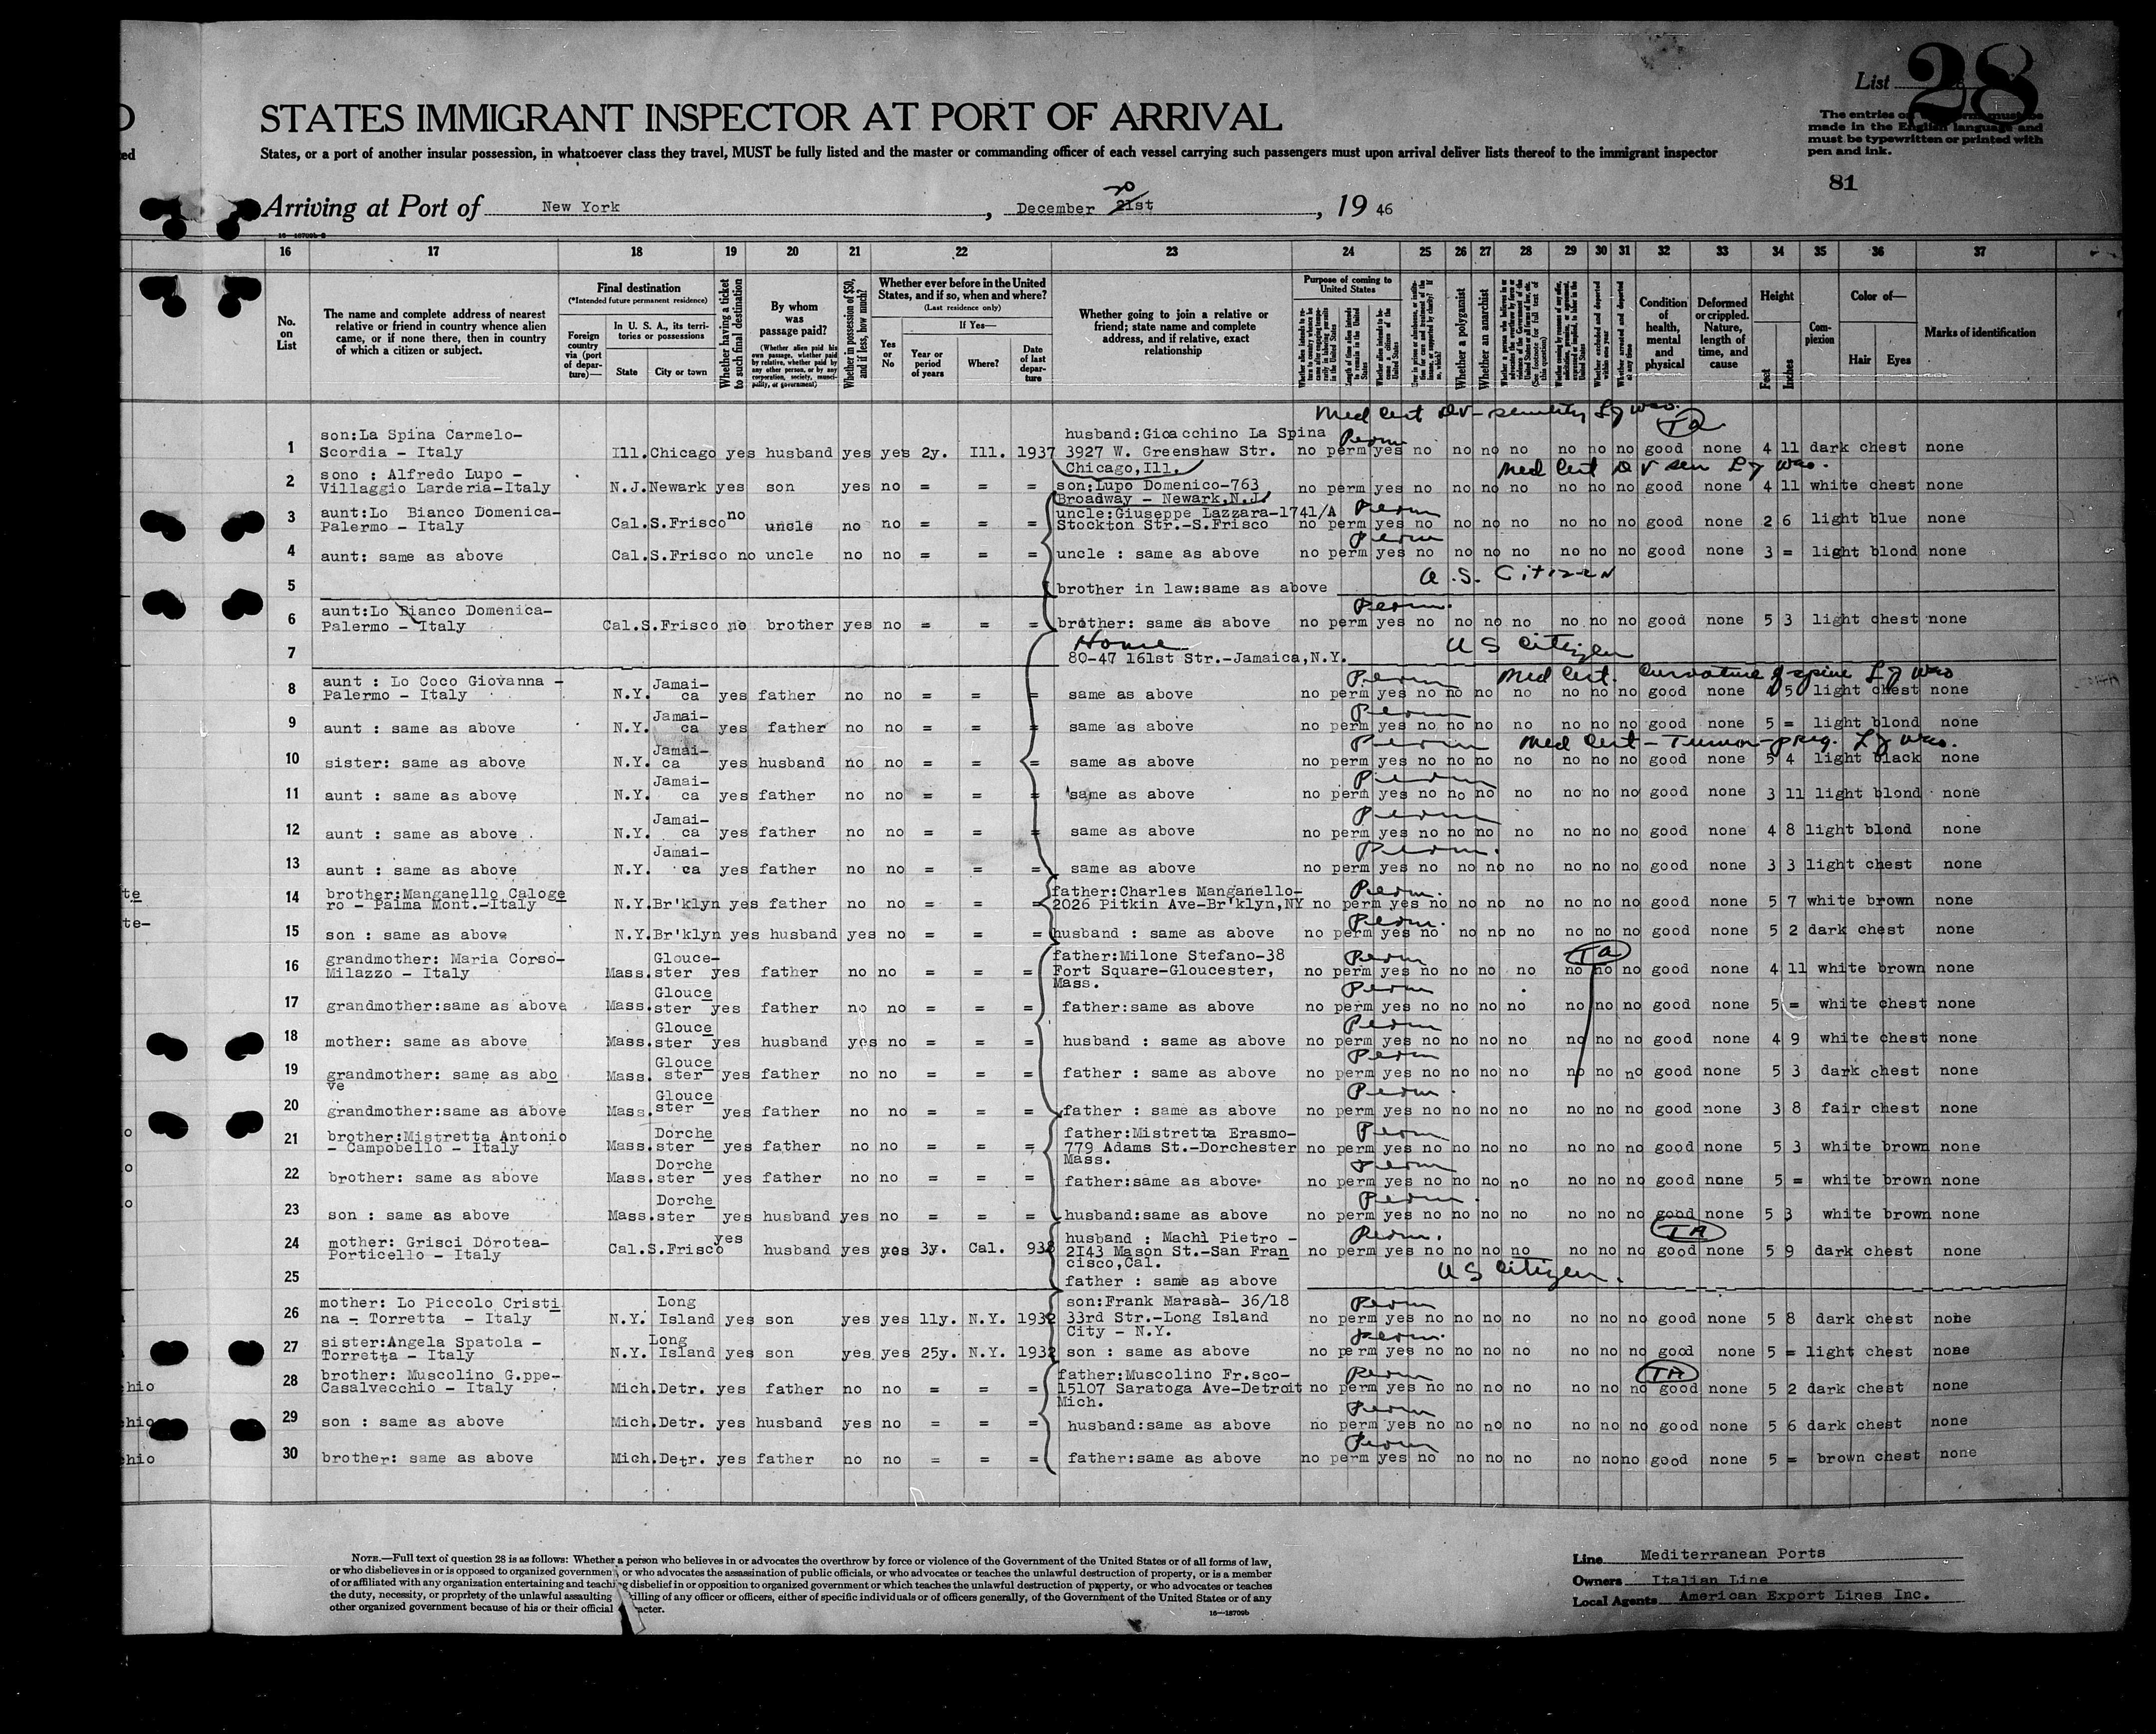 List 28
The entries on
made in the English language and
must be typewritten or printed with
pen and ink.
81
STATES IMMIGRANT INSPECTOR AT PORT OF ARRIVAL
States, or a port of another insular possession, in whatsoever class they travel, MUST be fully listed and the master or commanding officer of each vessel carrying such passengers must upon arrival deliver lists thereof to the immigrant inspector
Arriving at Port of New York, December 20 21st, 19 46
16 17 18 19 20 21 22 23 24 25 26 27 28 29 30 31 32 33 34 35 36 37
No. on List
The name and complete address of nearest relative or friend in country whence alien came, or if none there, then in country of which a citizen or subject.
Final destination
(*Intended future permanent residence)
Foreign country via (port of departure)—
In U. S. A., its territories or possessions
State
City or town
Whether having a ticket to such final destination
By whom was passage paid?
(Whether alien paid his own passage, whether paid by relative, whether paid by any other person, or by any corporation, society, municipality, or government)
Whether in possession of $50, and if less, how much?
Whether ever before in the United States, and if so, when and where?
(Last residence only)
Yes or No
If Yes—
Year or period of years
Where?
Date of last departure
Whether going to join a relative or friend; state name and complete address, and if relative, exact relationship
Purpose of coming to United States
Whether a polygamist
Whether an anarchist
Condition of health, mental and physical
Deformed or crippled. Nature, length of time, and cause
Height
Feet
Inches
Complexion
Color of—
Hair
Eyes
Marks of identification
Med Cert
TA
1 son:La Spina Carmelo- Scordia - Italy Ill. Chicago yes husband yes yes 2y. Ill. 1937 husband:Gioacchino La Spina 3927 W. Greenshaw Str. Chicago,Ill. Perm no perm yes no no no no no no no good none 4 11 dark chest none
Med Cert
2 sono : Alfredo Lupo - Villaggio Larderia-Italy N.J. Newark yes son yes no = = = son:Lupo Domenico-763 Broadway - Newark.N.J. no perm yes no no no no no no no good none 4 11 white chest none
3 aunt:Lo Bianco Domenica- Palermo - Italy Cal. S.Frisco no uncle no no = = = uncle:Giuseppe Lazzara-1741/A Stockton Str.-S.Frisco Perm no perm yes no no no no no no no good none 2 6 light blue none
4 aunt: same as above Cal. S.Frisco no uncle no no = = = uncle : same as above Perm no perm yes no no no no no no no good none 3 = light blond none
5 brother in law:same as above U.S. Citizen
6 aunt:Lo Bianco Domenica- Palermo - Italy Cal. S.Frisco no brother yes no = = = brother: same as above Perm. no perm yes no no no no no no no good none 5 3 light chest none
7 Home 80-47 161st Str.-Jamaica,N.Y. US Citizen
Med Cert. Curvature of spine
8 aunt : Lo Coco Giovanna - Palermo - Italy N.Y. Jamai- ca yes father no no = = = same as above Perm no perm yes no no no no no no no good none 4 5 light chest none
9 aunt : same as above N.Y. Jamai- ca yes father no no = = = same as above Perm no perm yes no no no no no no no good none 5 = light blond none
Med Cert -
10 sister: same as above N.Y. Jamai- ca yes husband no no = = = same as above Perm no perm yes no no no no no no no good none 5 4 light black none
11 aunt : same as above N.Y. Jamai- ca yes father no no = = = same as above Perm no perm yes no no no no no no no good none 3 11 light blond none
12 aunt : same as above N.Y. Jamai- ca yes father no no = = = same as above Perm no perm yes no no no no no no no good none 4 8 light blond none
13 aunt : same as above N.Y. Jamai- ca yes father no no = = = same as above Perm. no perm yes no no no no no no no good none 3 3 light chest none
14 brother:Manganello Caloge ro - Palma Mont.-Italy N.Y. Br'klyn yes father no no = = = father:Charles Manganello- 2026 Pitkin Ave-Br'klyn,NY Perm. no perm yes no no no no no no no good none 5 7 white brown none
15 son : same as above N.Y. Br'klyn yes husband yes no = = = husband : same as above Perm. no perm yes no no no no no no no good none 5 2 dark chest none
TA
16 grandmother: Maria Corso- Milazzo - Italy Mass. Glouce- ster yes father no no = = = father:Milone Stefano-38 Fort Square-Gloucester, Mass. Perm no perm yes no no no no no no no good none 4 11 white brown none
17 grandmother:same as above Mass. Glouce ster yes father no no = = = father:same as above Perm no perm yes no no no no no no no good none 5 = white chest none
18 mother: same as above Mass. Glouce ster yes husband yes no = = = husband : same as above Perm no perm yes no no no no no no no good none 4 9 white chest none
19 grandmother: same as abo ve Mass. Glouce ster yes father no no = = = father : same as above Perm no perm yes no no no no no no no good none 5 3 dark chest none
20 grandmother:same as above Mass. Glouce ster yes father no no = = = father : same as above Perm. no perm yes no no no no no no no good none 3 8 fair chest none
21 brother:Mistretta Antonio - Campobello - Italy Mass. Dorche ster yes father no no = = = father:Mistretta Erasmo- 779 Adams St.-Dorchester Mass. Perm no perm yes no no no no no no no good none 5 3 white brown none
22 brother: same as above Mass. Dorche ster yes father no no = = = father:same as above. Perm no perm yes no no no no no no no good none 5 = white brown none
23 son : same as above Mass. Dorche ster yes husband yes no = = = husband:same as above Perm. no perm yes no no no no no no no good none 5 3 white brown none
TA
24 mother: Grisci Dorotea- Porticello - Italy Cal. S.Frisco yes husband yes yes 3y. Cal. 938 husband : Machì Pietro - 2143 Mason St.-San Fran cisco,Cal. Perm. no perm yes no no no no no no no good none 5 9 dark chest none
25 father : same as above US Citizen.
26 mother: Lo Piccolo Cristi na - Torretta - Italy N.Y. Long Island yes son yes yes 11y. N.Y. 1932 son:Frank Marasà- 36/18 33rd Str.-Long Island City - N.Y. Perm no perm yes no no no no no no no good none 5 8 dark chest none
27 sister:Angela Spatola - Torretta - Italy N.Y. Long Island yes son yes yes 25y. N.Y. 1932 son : same as above Perm. no perm yes no no no no no no no good none 5 = light chest none
TA
28 brother: Muscolino G.ppe- Casalvecchio - Italy Mich. Detr. yes father no no = = = father:Muscolino Fr.sco- 15107 Saratoga Ave-Detroit Mich. Perm no perm yes no no no no no no no good none 5 2 dark chest none
29 son : same as above Mich. Detr. yes husband yes no = = = husband:same as above Perm no perm yes no no no no no no no good none 5 6 dark chest none
30 brother: same as above Mich. Detr. yes father no no = = = father:same as above Perm no perm yes no no no no no no no good none 5 = brown chest none
NOTE.—Full text of question 28 is as follows: Whether a person who believes in or advocates the overthrow by force or violence of the Government of the United States or of all forms of law,
or who disbelieves in or is opposed to organized government, or who advocates the assassination of public officials, or who advocates or teaches the unlawful destruction of property, or is a member
of or affiliated with any organization entertaining and teaching disbelief in or opposition to organized government or which teaches the unlawful destruction of property, or who advocates or teaches
the duty, necessity, or propriety of the unlawful assaulting killing of any officer or officers, either of specific individuals or of officers generally, of the Government of the United States or of any
other organized government because of his or their official
16—18709b
Line Mediterranean Ports
Owners Italian Line
Local Agents American Export Lines Inc.